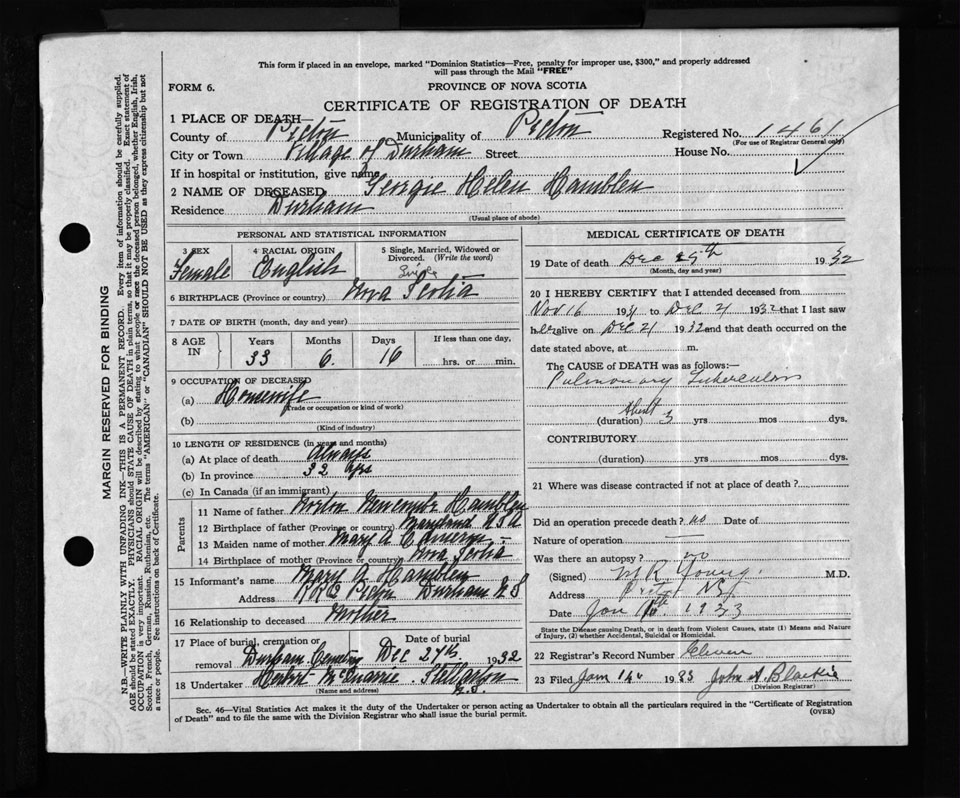 This form if placed in an envelope, marked "Dominion Statistics—Free, penalty for improper use, $300," and properly addressed
will pass through the Mail "FREE"
FORM 6.
PROVINCE OF NOVA SCOTIA
CERTIFICATE OF REGISTRATION OF DEATH
1 PLACE OF DEATH—
County of Pictou Municipality of Pictou Registered No. 1461
(For use of Registrar General only)
City or Town Village of Durham Street House No.
If in hospital or institution, give name
2 NAME OF DECEASED Georgie Helen Hamblen
Residence Durham
(Usual place of abode)
PERSONAL AND STATISTICAL INFORMATION
3 SEX Female
4 RACIAL ORIGIN English
5 Single, Married, Widowed or Divorced. (Write the word) Single
6 BIRTHPLACE (Province or country) Nova Scotia
7 DATE OF BIRTH (month, day and year)
8 AGE IN Years Months Days If less than one day,
33 6 16 hrs. or min.
9 OCCUPATION OF DECEASED
(a) Housewife
(Trade or occupation or kind of work)
(b)
(Kind of industry)
10 LENGTH OF RESIDENCE (in years and months)
(a) At place of death Always
(b) In province 32 yrs
(c) In Canada (if an immigrant)
Parents
11 Name of father Norton Newcomb Hamblen
12 Birthplace of father (Province or country) Maryland U S A
13 Maiden name of mother Mary A Cameron
14 Birthplace of mother (Province or country) Nova Scotia
15 Informant's name Mary A Hamblen
Address Pictou Durham N S
16 Relationship to deceased Mother
17 Place of burial, cremation or removal Durham Cemetery Date of burial Dec 27th 1932
18 Undertaker Stellarton N.S.
(Name and address)
MEDICAL CERTIFICATE OF DEATH
19 Date of death Dec 1932
(Month, day and year)
20 I HEREBY CERTIFY that I attended deceased from
Nov 16 1931 to Dec 21 1932 that I last saw
her alive on Dec 21 1932 and that death occurred on the
date stated above, at m.
The CAUSE OF DEATH was as follows:—
Pulmonary Tuberculosis
About
(duration) 3 yrs mos dys.
CONTRIBUTORY
(duration) yrs mos dys.
21 Where was disease contracted if not at place of death?
Did an operation precede death? no Date of
Nature of operation
Was there an autopsy? no
(Signed) M R Young M.D.
Address Pictou NS
Date Jan 1933
State the Disease causing Death, or in death from Violent Causes, state (1) Means and Nature
of Injury, (2) whether Accidental, Suicidal or Homicidal.
22 Registrar's Record Number Eleven
23 Filed Jan 14 1933 John A. Blaikie
(Division Registrar)
Sec. 46—Vital Statistics Act makes it the duty of the Undertaker or person acting as Undertaker to obtain all the particulars required in the "Certificate of Registration
of Death" and to file the same with the Division Registrar who shall issue the burial permit.
(OVER)
MARGIN RESERVED FOR BINDING
N.B.—WRITE PLAINLY WITH UNFADING INK—THIS IS A PERMANENT RECORD. Every item of information should be carefully supplied.
AGE should be stated EXACTLY. PHYSICIANS should STATE CAUSE OF DEATH in plain terms, so that it may be properly classified. Exact statement of
OCCUPATION is very important. RACIAL ORIGIN will be described by stating to what people or race the deceased person belonged, whether English, Irish,
Scotch, French, German, Russian, Ruthenian, etc. The terms "AMERICAN" or "CANADIAN" SHOULD NOT BE USED as they express citizenship but not
a race or people. See instructions on back of Certificate.